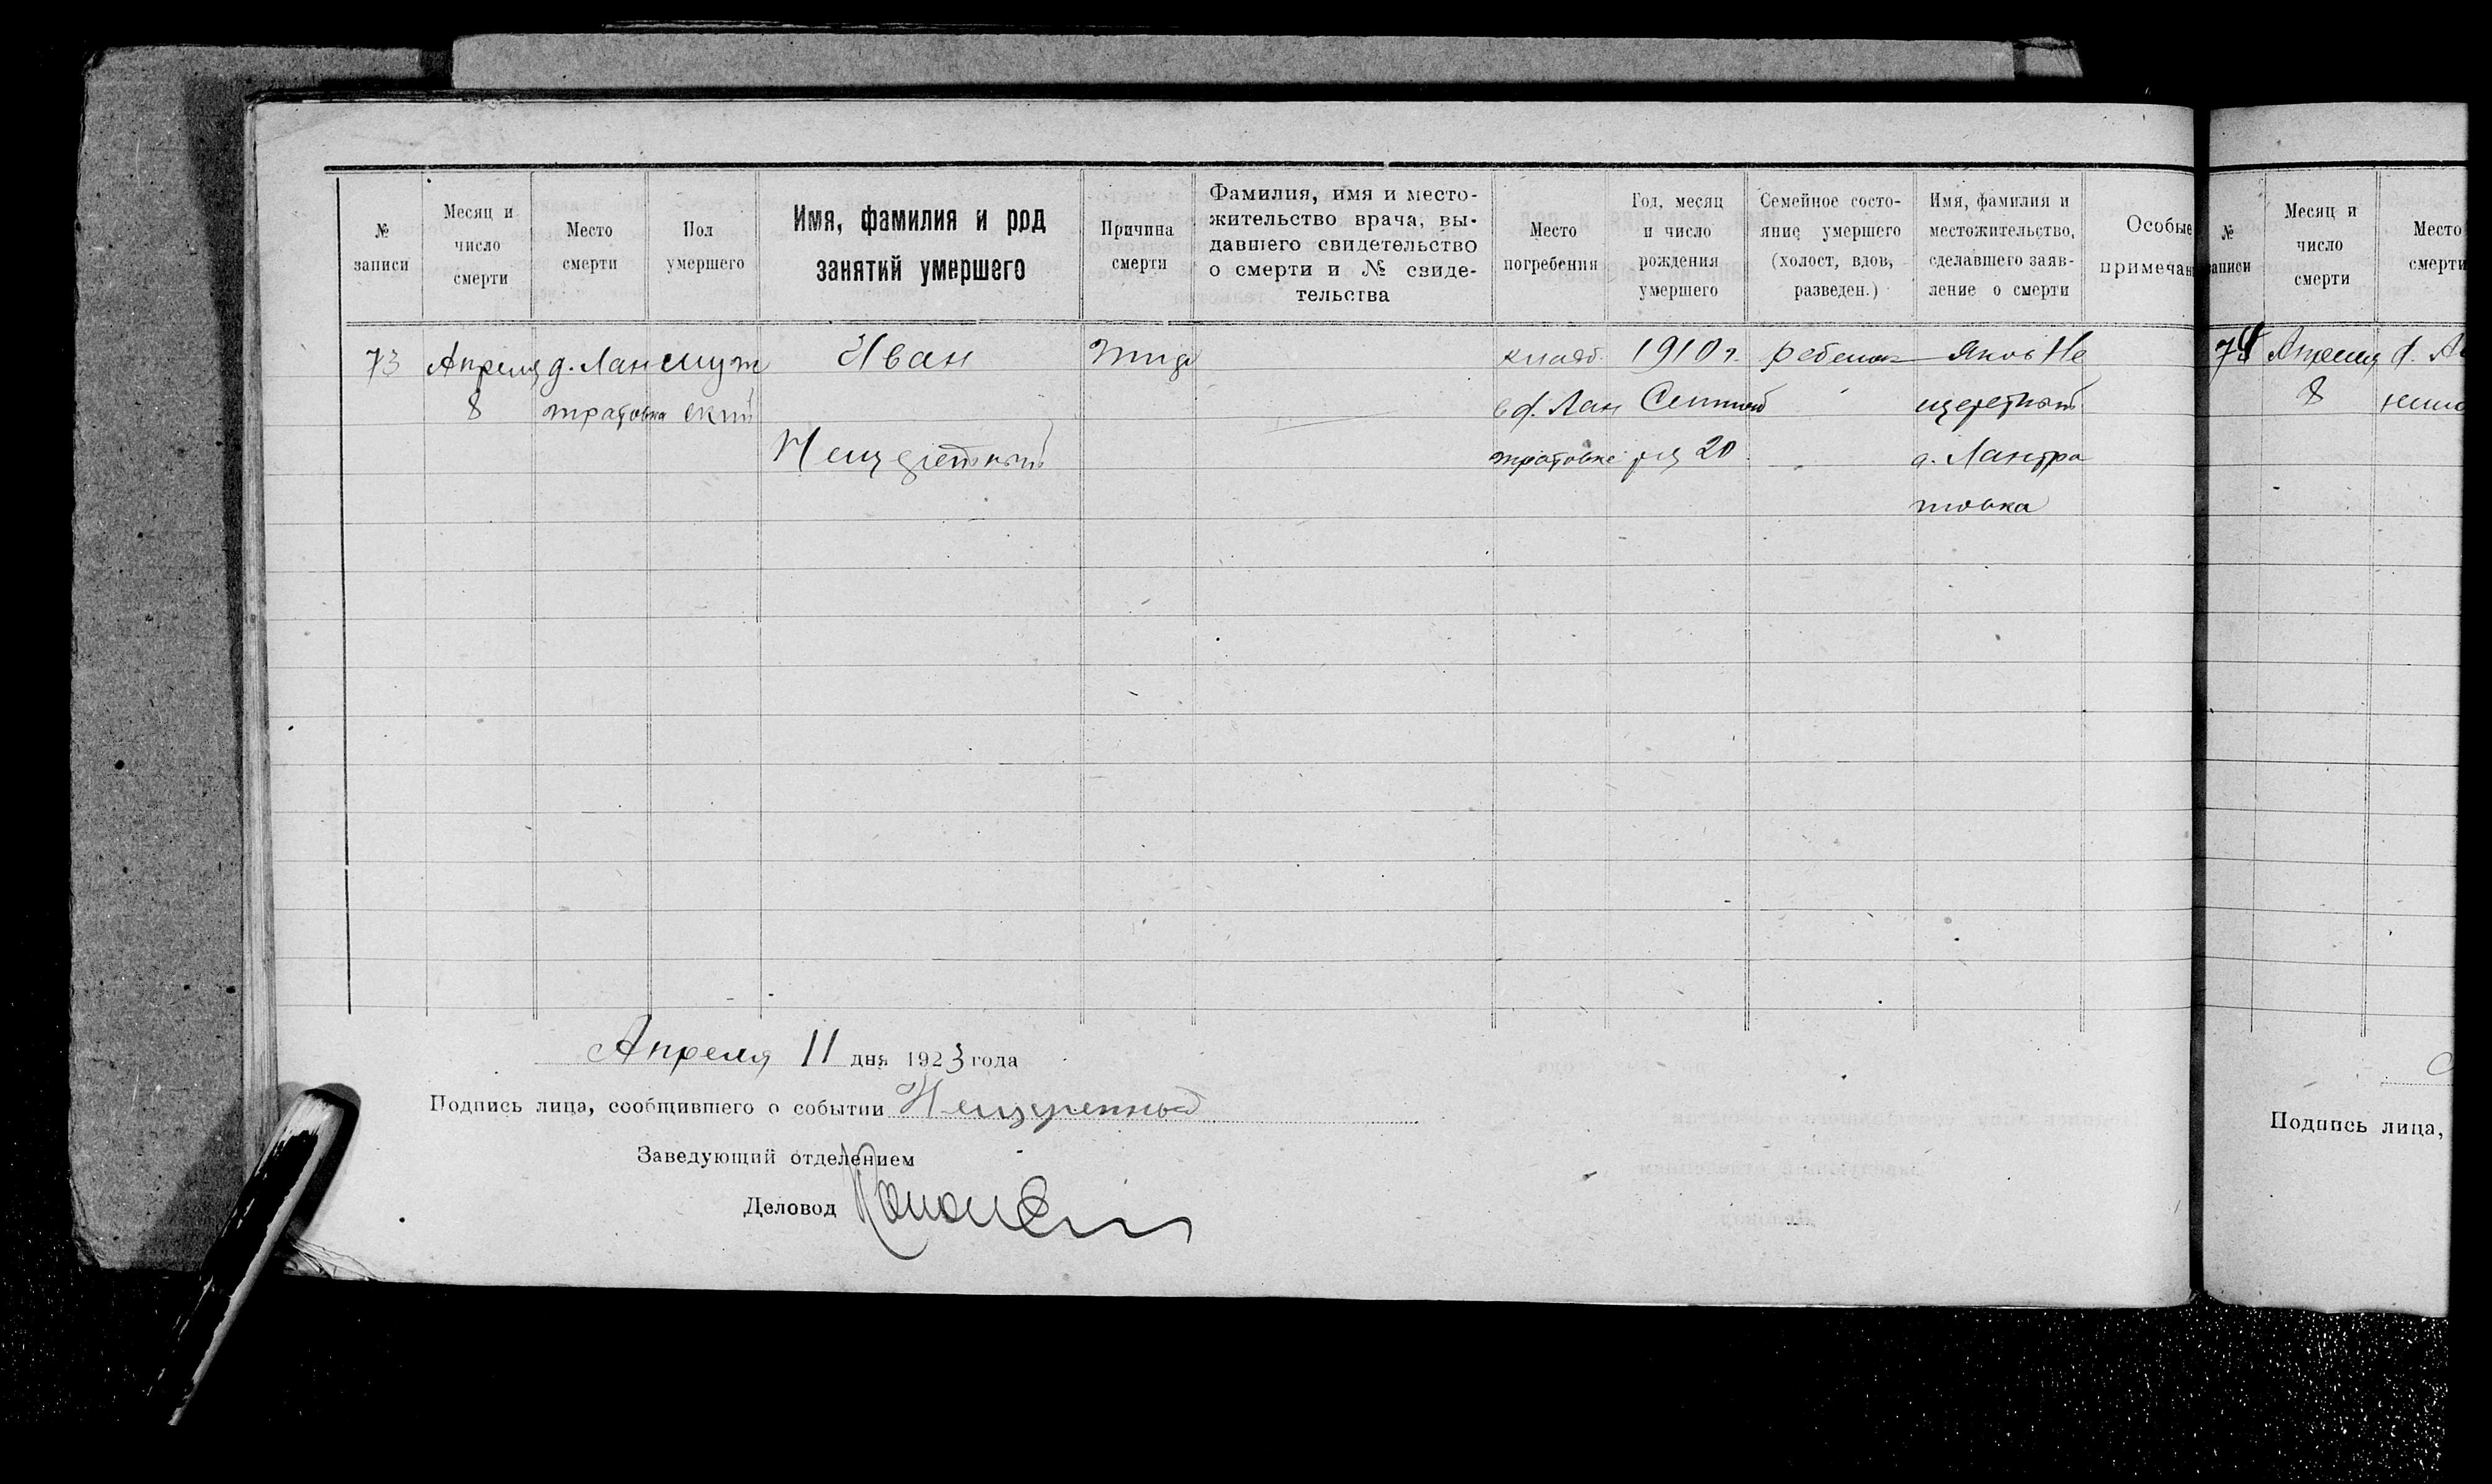 № записи
Месяц и число смерти
Место смерти
Пол умершего
Имя, фамилия и род занятий умершего
Причина смерти
Фамилия, имя и место-
жительство врача, вы-
давшего свидетельство
о смерти и № свиде-
тельства
Место погребения
Год, месяц и число рождения умершего
Семейное состо-
яние умершего
(холост, вдов,
разведен.)
Имя, фамилия и
местожительство,
сделавшего заяв-
ление о смерти
Особые
примечан
73 Апреля д. Лан муж Иван Тиф 1910 г. ребенок Яков Не
8 тратовка ский в д. Лан Сентяб щеретный
Нещеретный тратовке ря 20 д. Лантра
товка
Апреля 11 дня 1923 года
Подпись лица, сообщившего о событии Нещеретный
Заведующий отделением
Деловод
№
записи
Месяц и
число
смерти
Место
смерти
74 Апреля д.
8
Подпись лица,